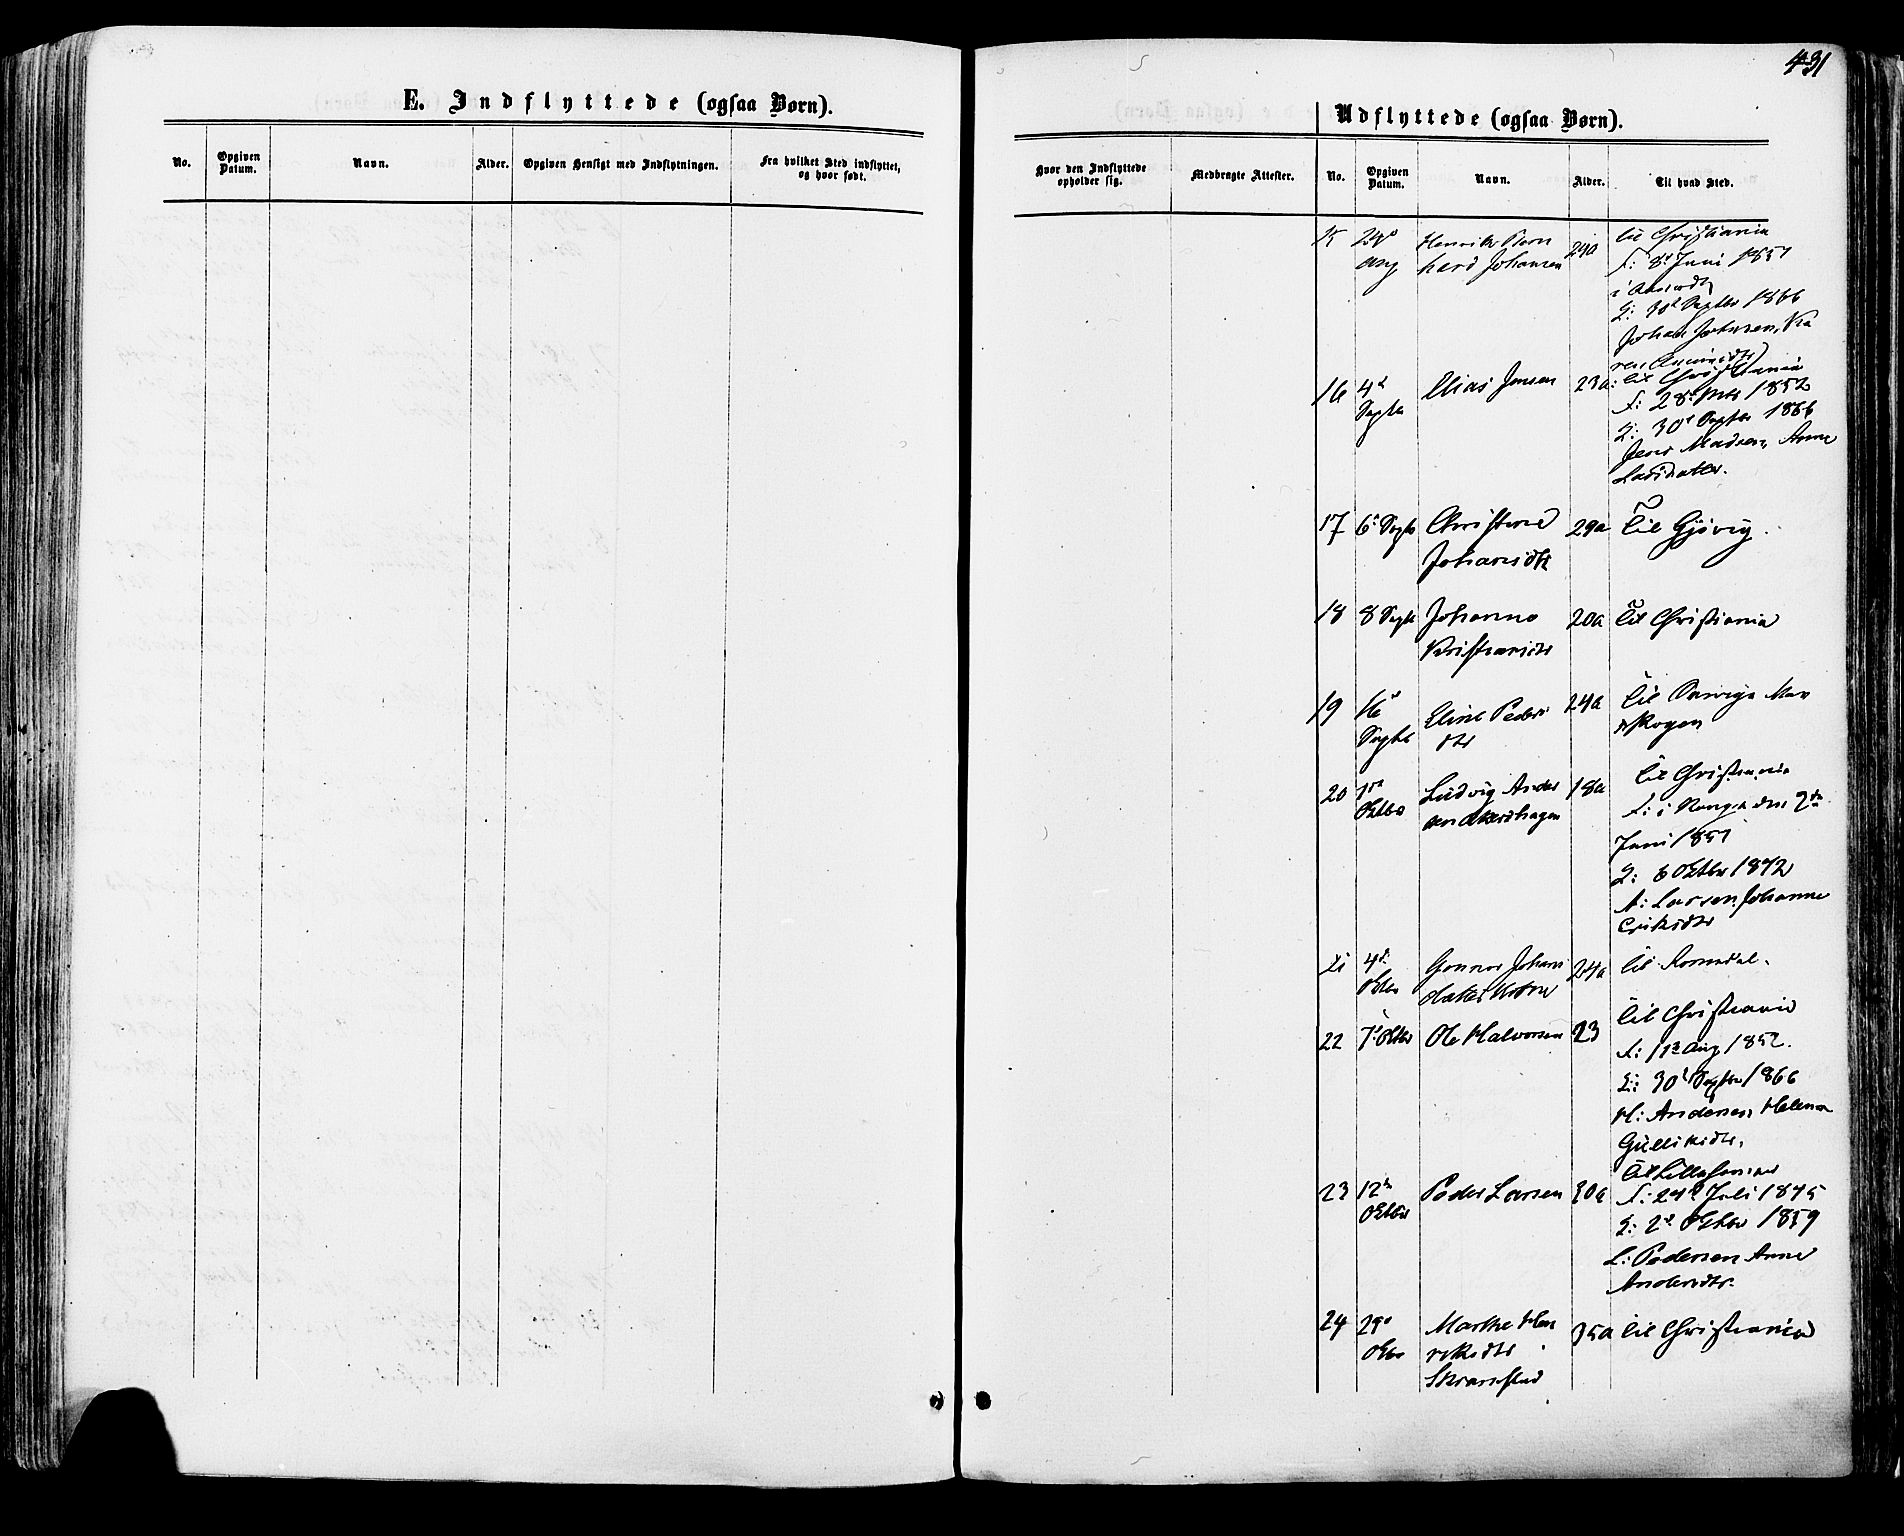 431
E. Indflyttede (ogsaa Børn).
No.
Opgiven Datum.
Navn.
Alder.
Opgiven Hensigt med Indflytningen.
Fra hvilket Sted indflyttet, og hvor født.
Udflyttede (ogsaa Børn).
Hvor den Indflyttede opholder sig.
Medbragte Attester.
No.
Opgiven Datum.
Navn.
Alder.
Til hvad Sted.
15 24de Henrik Bern 24a til Christiania
aug hard Johansen f: 8de Juni 1851
30te Septbr 1866
Johan Johnsen, Ka
16 4de Elias Jensen 23a til Christiania
Septbr f: 28de 1852
30te Septbr 1866
Jens Madsen, Anne
Larsdatter.
17 6te Septbr Christine 29a til Gjøvig.
Johansdtr
18 8 Septbr Johanne 20a til Christiania
Kristiansdtr
19 16de Eline Peders 24a til
Septbr dtr skogen
20 1ste Ludvig Ander 18a til Christiania
Oktbr sen f: i den 2den
Juni 1857
6 Oktbr 1872
A: Larsen, Johanne
Eriksdtr
21 4de Gunnor Johans 24a til Romedal.
Oktbr datter
22 7de Oktbr Ole Halvorsen 23 til Christiania
f: 13 Aug 1852.
30te Septbr 1866
H: Andersen, Helena
Gulliksdtr,
23 12te Peder Larsen 30a til Lillehammer
Oktbr f: 24de Juli 1845
2den Oktbr 1859
L: Pedersen Anne
Andersdtr.
24 29de Marthe Hen 35a til Christiania
Oktbr riksdtr
Skramstad